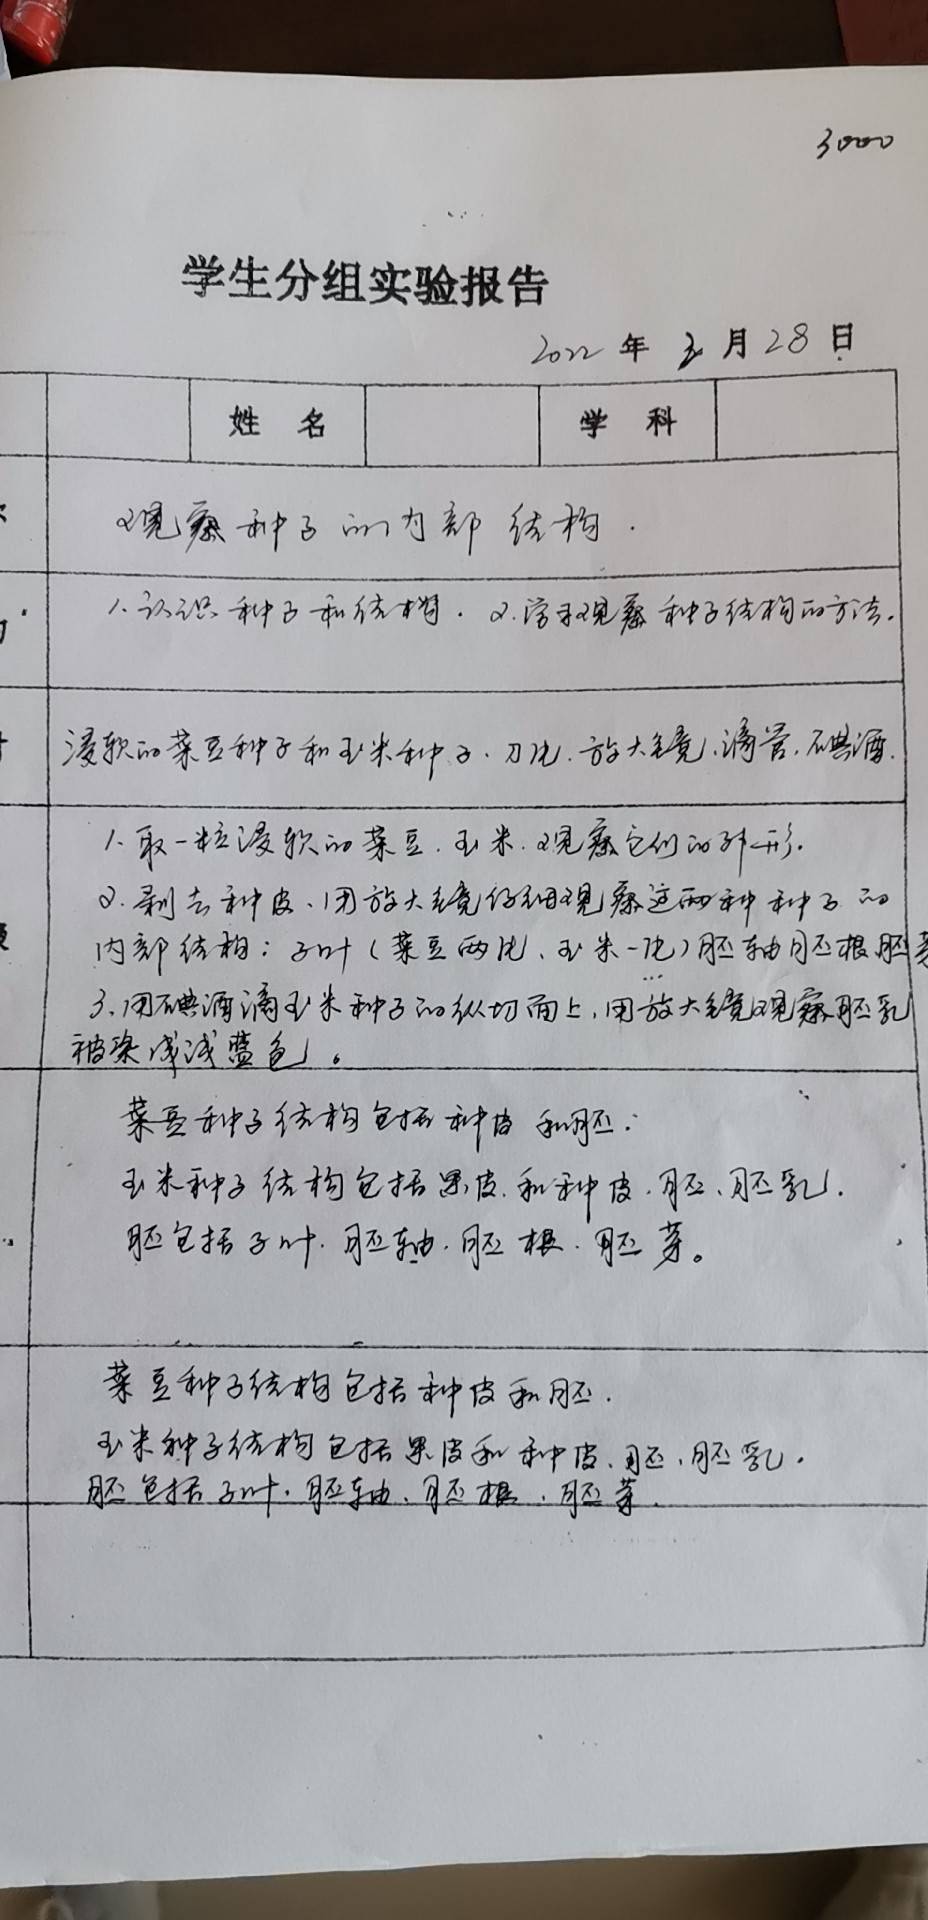 3000
学生分组实验报告
2022年3月28日
姓名 学科
观察种子的内部结构.
1.认识种子和结构. 2.学习观察种子结构的方法.
浸软的菜豆种子和玉米种子、刀片、放大镜、滴管、碘酒.
1.取一粒浸软的菜豆.玉米.观察它们的外形.
2.剥去种皮、用放大镜仔细观察这两种种子的
内部结构:子叶(菜豆两片、玉米一片)胚轴胚根胚芽
3.用碘酒滴玉米种子的纵切面上,用放大镜观察胚乳
被染成浅蓝色。
菜豆种子结构包括种皮和胚.
玉米种子结构包括果皮和种皮.胚、胚乳.
胚包括子叶.胚轴.胚根.胚芽。
菜豆种子结构包括种皮和胚.
玉米种子结构包括果皮和种皮、胚、胚乳.
胚包括子叶.胚轴、胚根、胚芽.